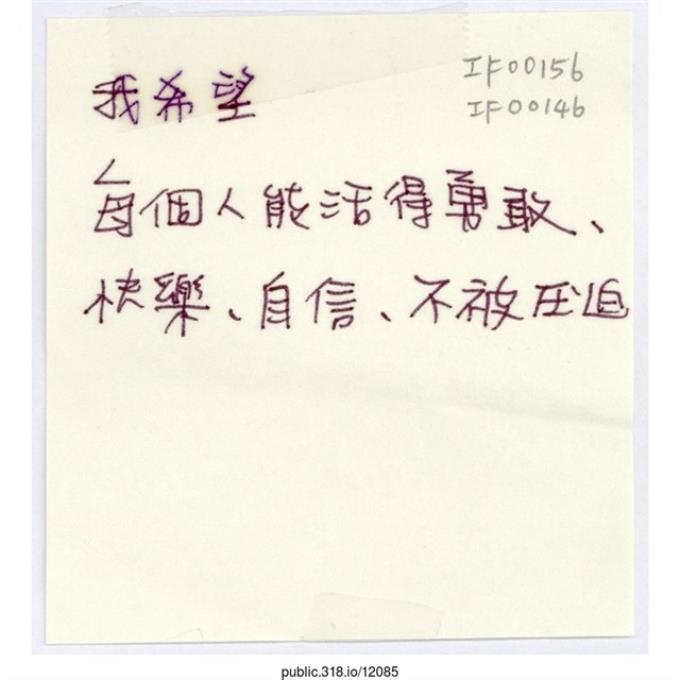 IF00156
IF00146
我希望
每個人能活得勇敢、
快樂、自信、不被压迫
public.318.io/12085